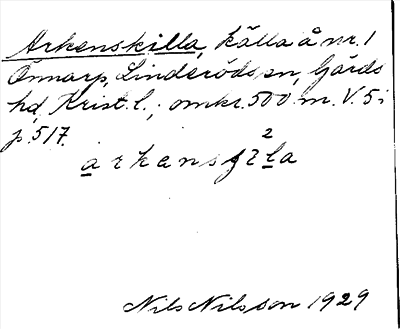 Arkenskilla, källa å nr. 1
Önnarp, Linderöds sn, Gärds
hd, Krist. l., omkr. 500 m. V. 5 i
p. 517.
Nils Nilsson 1929